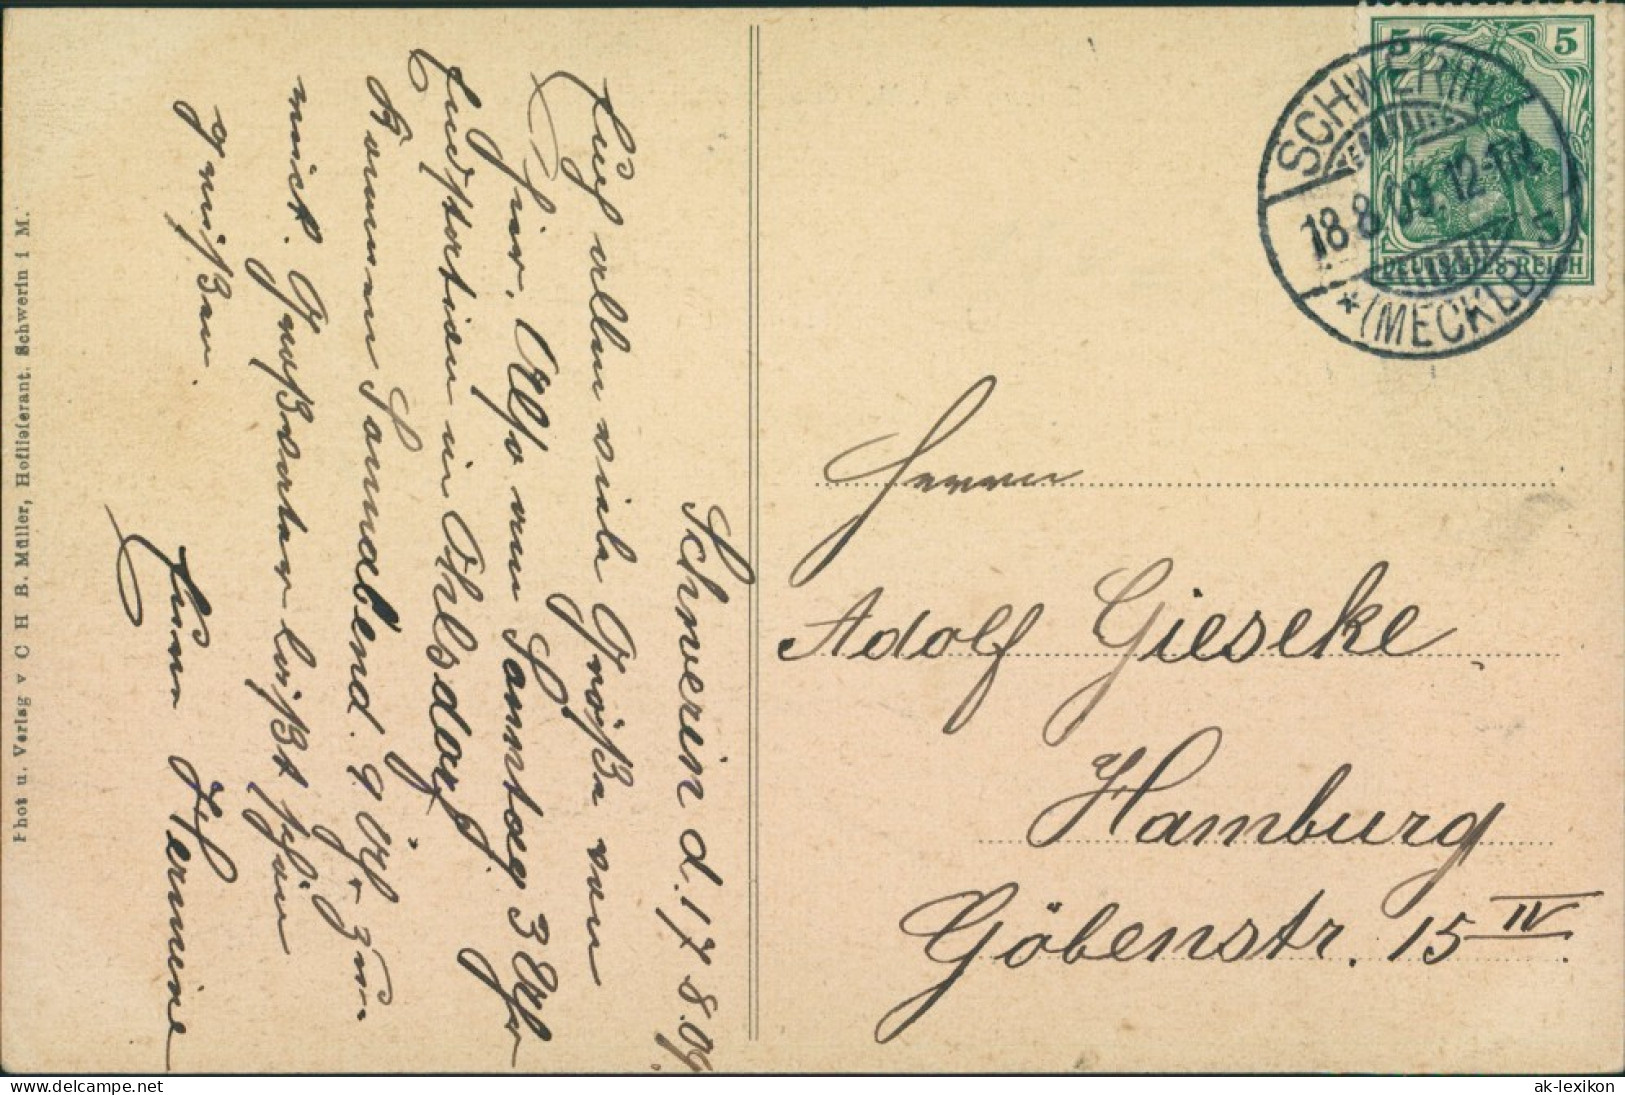 Schwerin d. 17.8.09.
Euch allen viele Grüße von
hier. Also am Sonntag 3 Uhr
in Ohlsdorf.
Kommen Sonnabend. 9 Uhr
mich. Großvater läßt schön
grüßen.
Eure Hermine
Phot u. Verlag v C H B. Müller, Hoflieferant. Schwerin i M.
5 5
DEUTSCHES REICH
SCHWERIN
18.8.09. 12-1N
*(MECKLB) 5
Herrn
Adolf Gieseke
Hamburg
Göbenstr. 15 IV
delcampe.net
The collector's marketplace
ak-lexikon